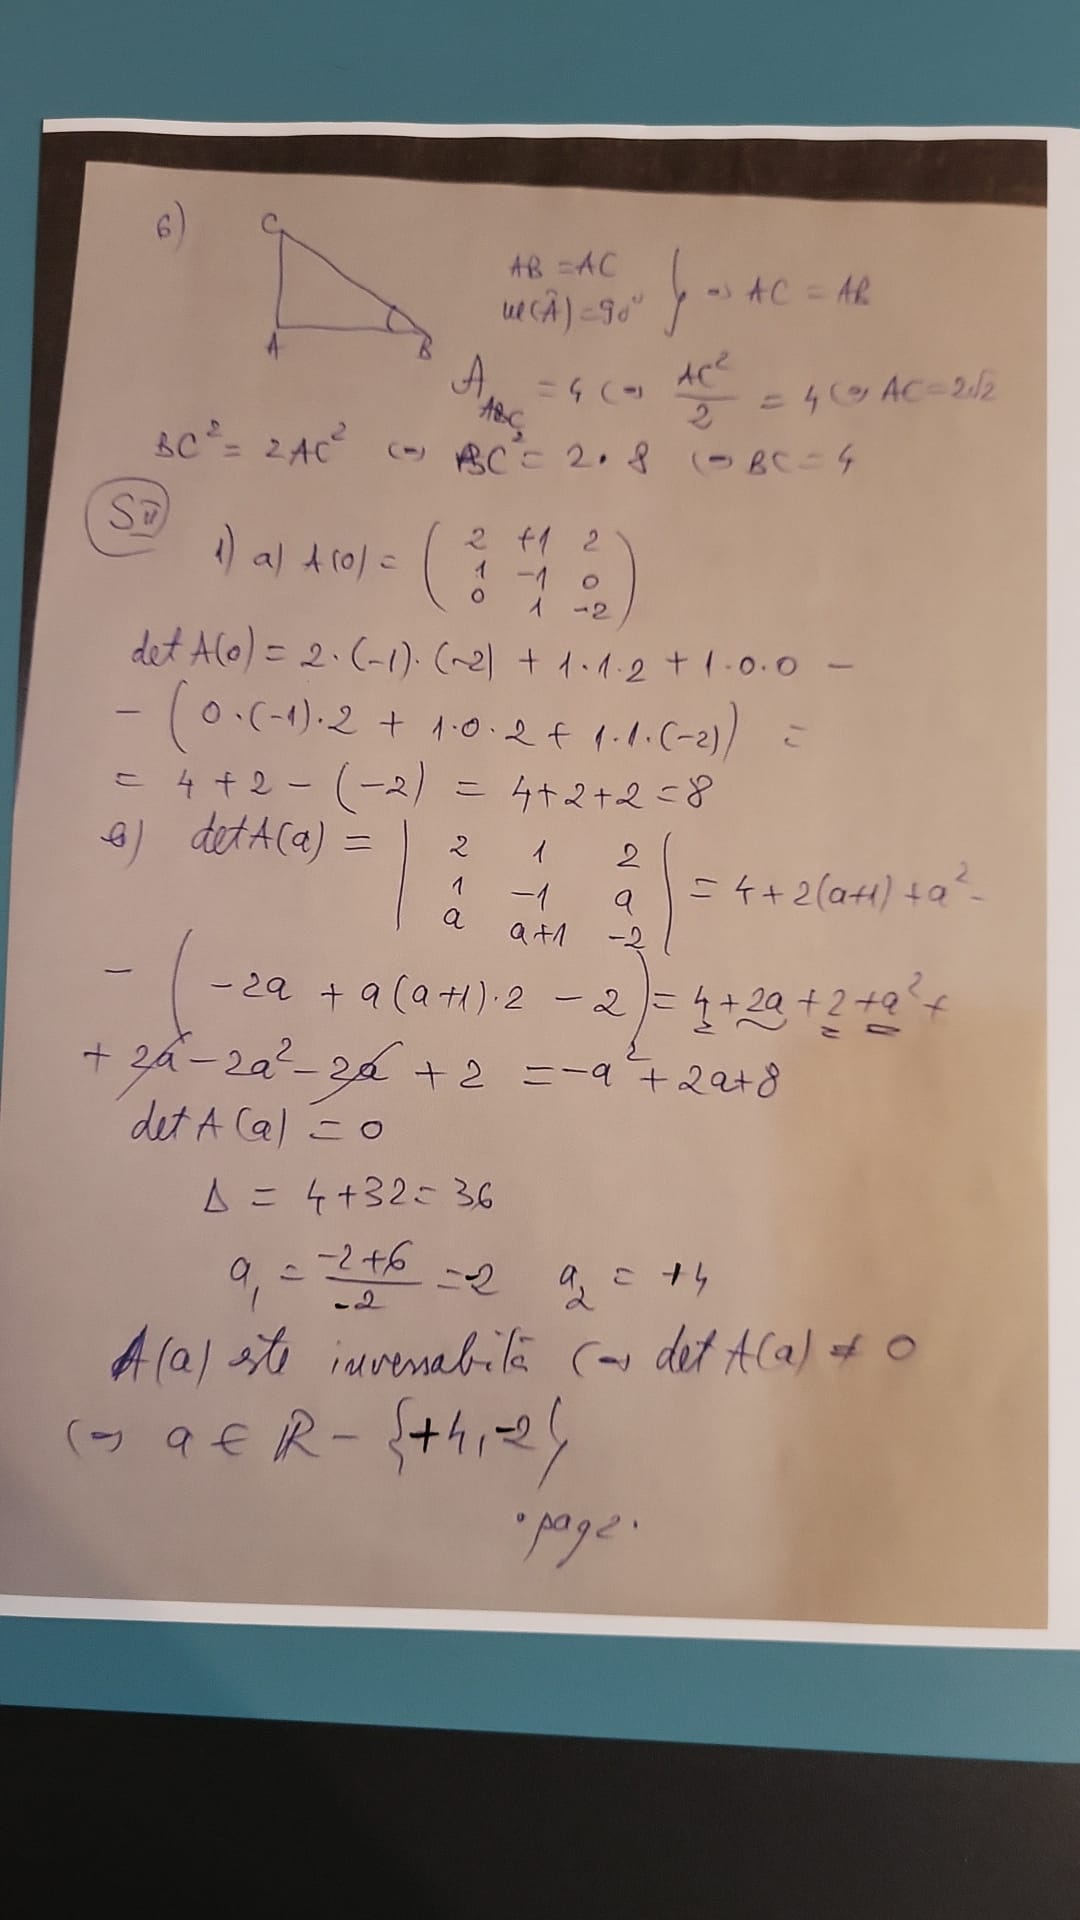 6)
C
A
B
AB = AC
m(Â) = 90° } ⇒ AC = AB
A_ABC = 4 ⇔ AC²/2 = 4 ⇔ AC = 2√2
BC² = 2AC² ⇔ BC² = 2 · 8 ⇔ BC = 4
SII
1) a) A(0) = ( 2 +1 2
1 -1 0
0 1 -2 )
det A(0) = 2·(-1)·(-2) + 1·1·2 + 1·0·0 -
- (0·(-1)·2 + 1·0·2 + 1·1·(-2)) =
= 4 + 2 - (-2) = 4+2+2 = 8
b) det A(a) = | 2 1 2
1 -1 a
a a+1 -2 | = 4 + 2(a+1) + a² -
- (-2a + a(a+1)·2 - 2) = 4 + 2a + 2 + a² +
+ 2a - 2a² - 2a + 2 = -a² + 2a + 8
det A(a) = 0
Δ = 4 + 32 = 36
a₁ = (-2+6)/-2 = -2 a₂ = +4
A(a) este inversabilă ⇔ det A(a) ≠ 0
⇔ a ∈ ℝ - {+4, -2}
· pag 2 ·